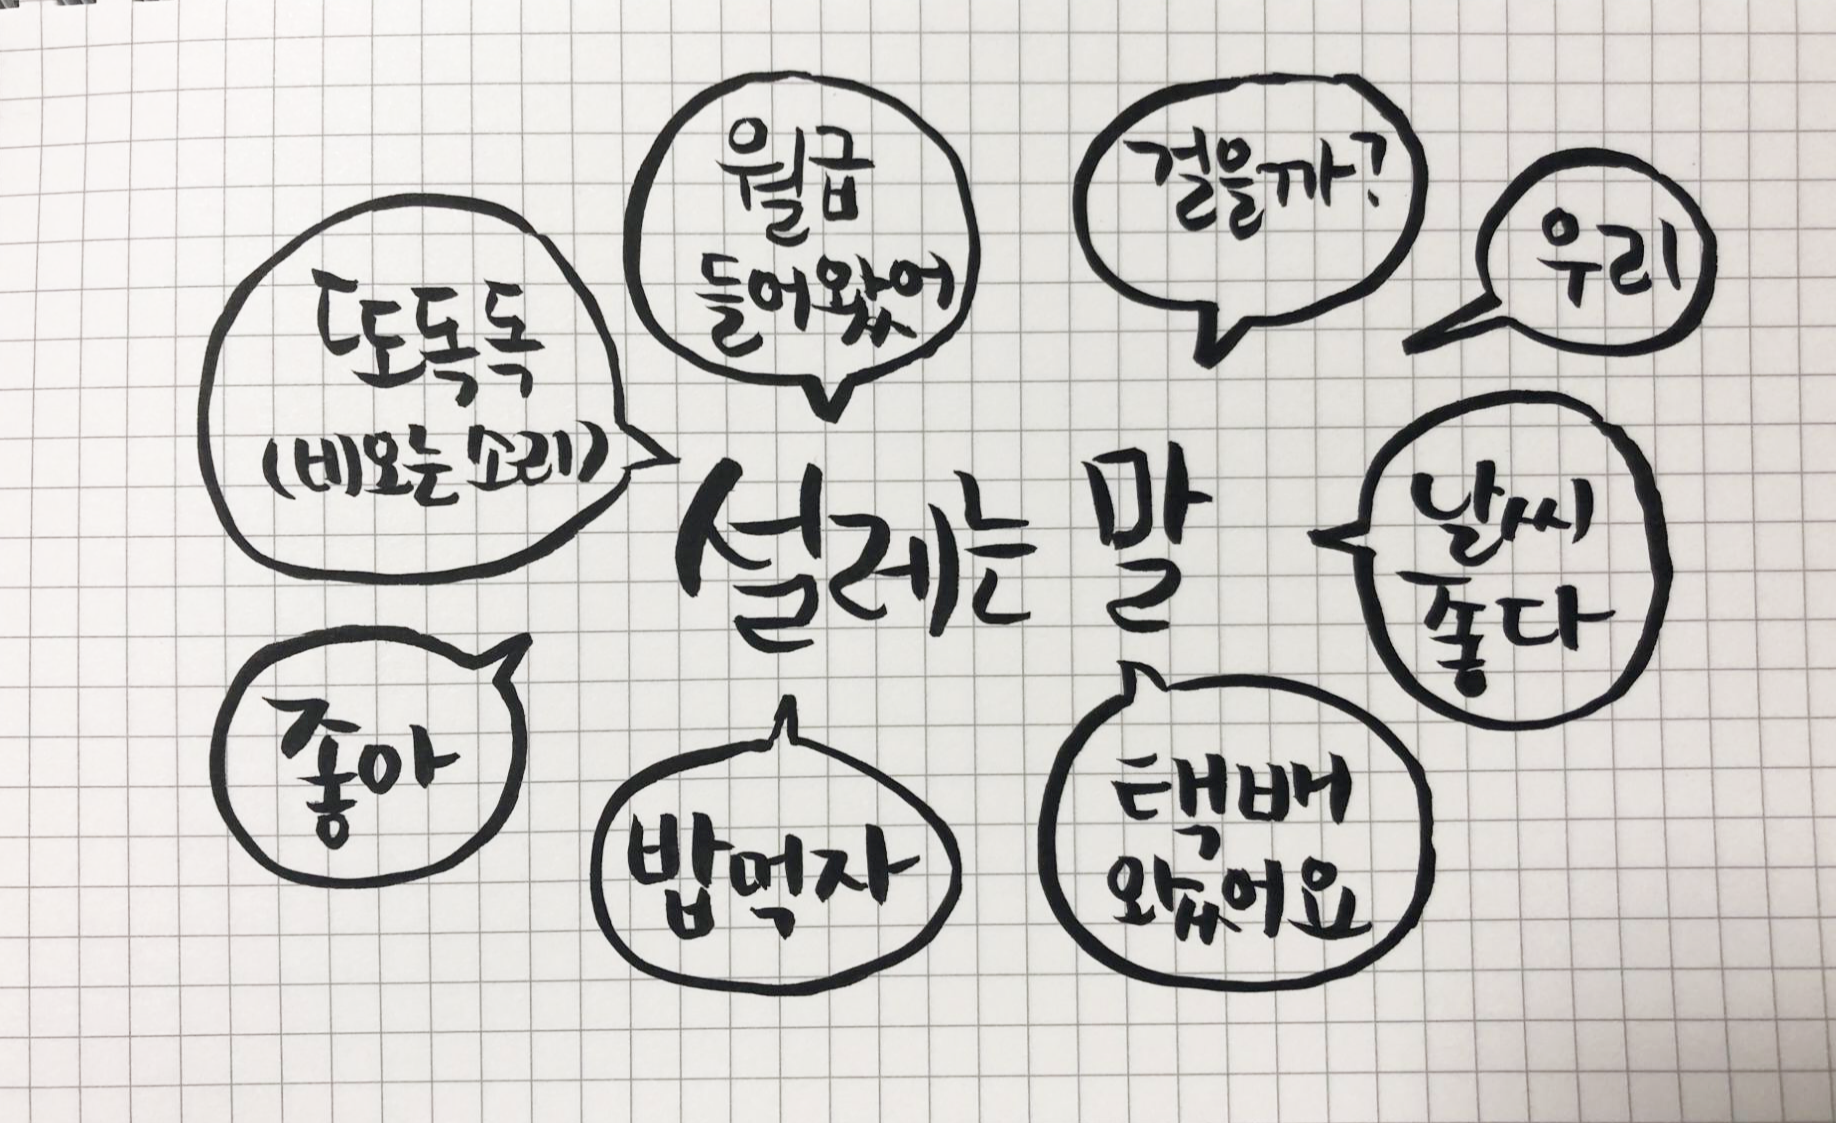 월급
들어왔어
걸을까?
우리
또독독
(비오는 소리)
설레는 말
날씨
좋다
좋아
밥먹자
택배
왔어요